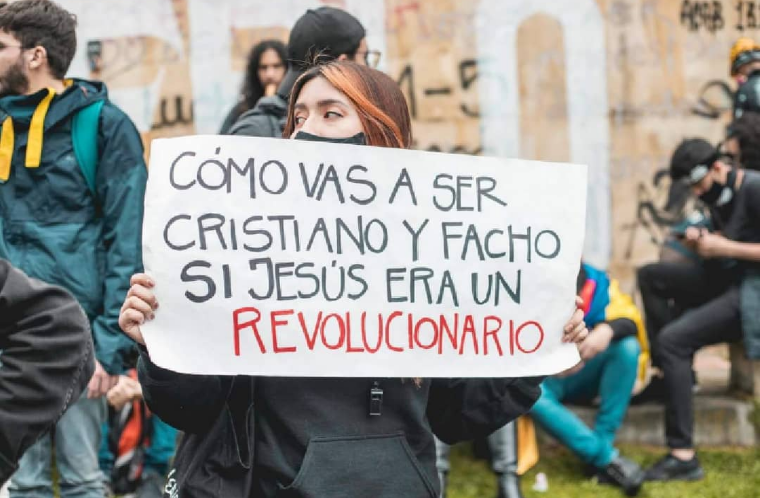 CÓMO VAS A SER
CRISTIANO Y FACHO
SI JESÚS ERA UN
REVOLUCIONARIO